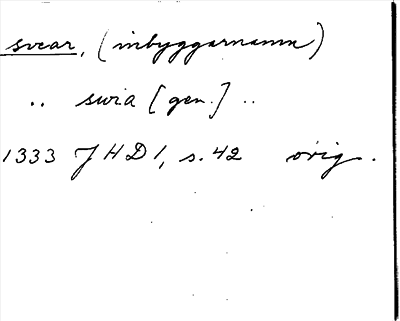 svear, (inbyggarnamn)
.. swia [gen.] ..
1333 JHD 1, s. 42 orig.